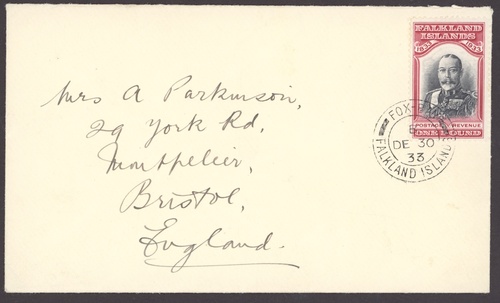 Mrs A Parkinson,
29 York Rd,
Montpelier,
Bristol,
England.
FALKLAND
ISLANDS
1833 1933
POSTAGE REVENUE
ONE POUND
FOX
DE 30
33
FALKLAND ISLANDS